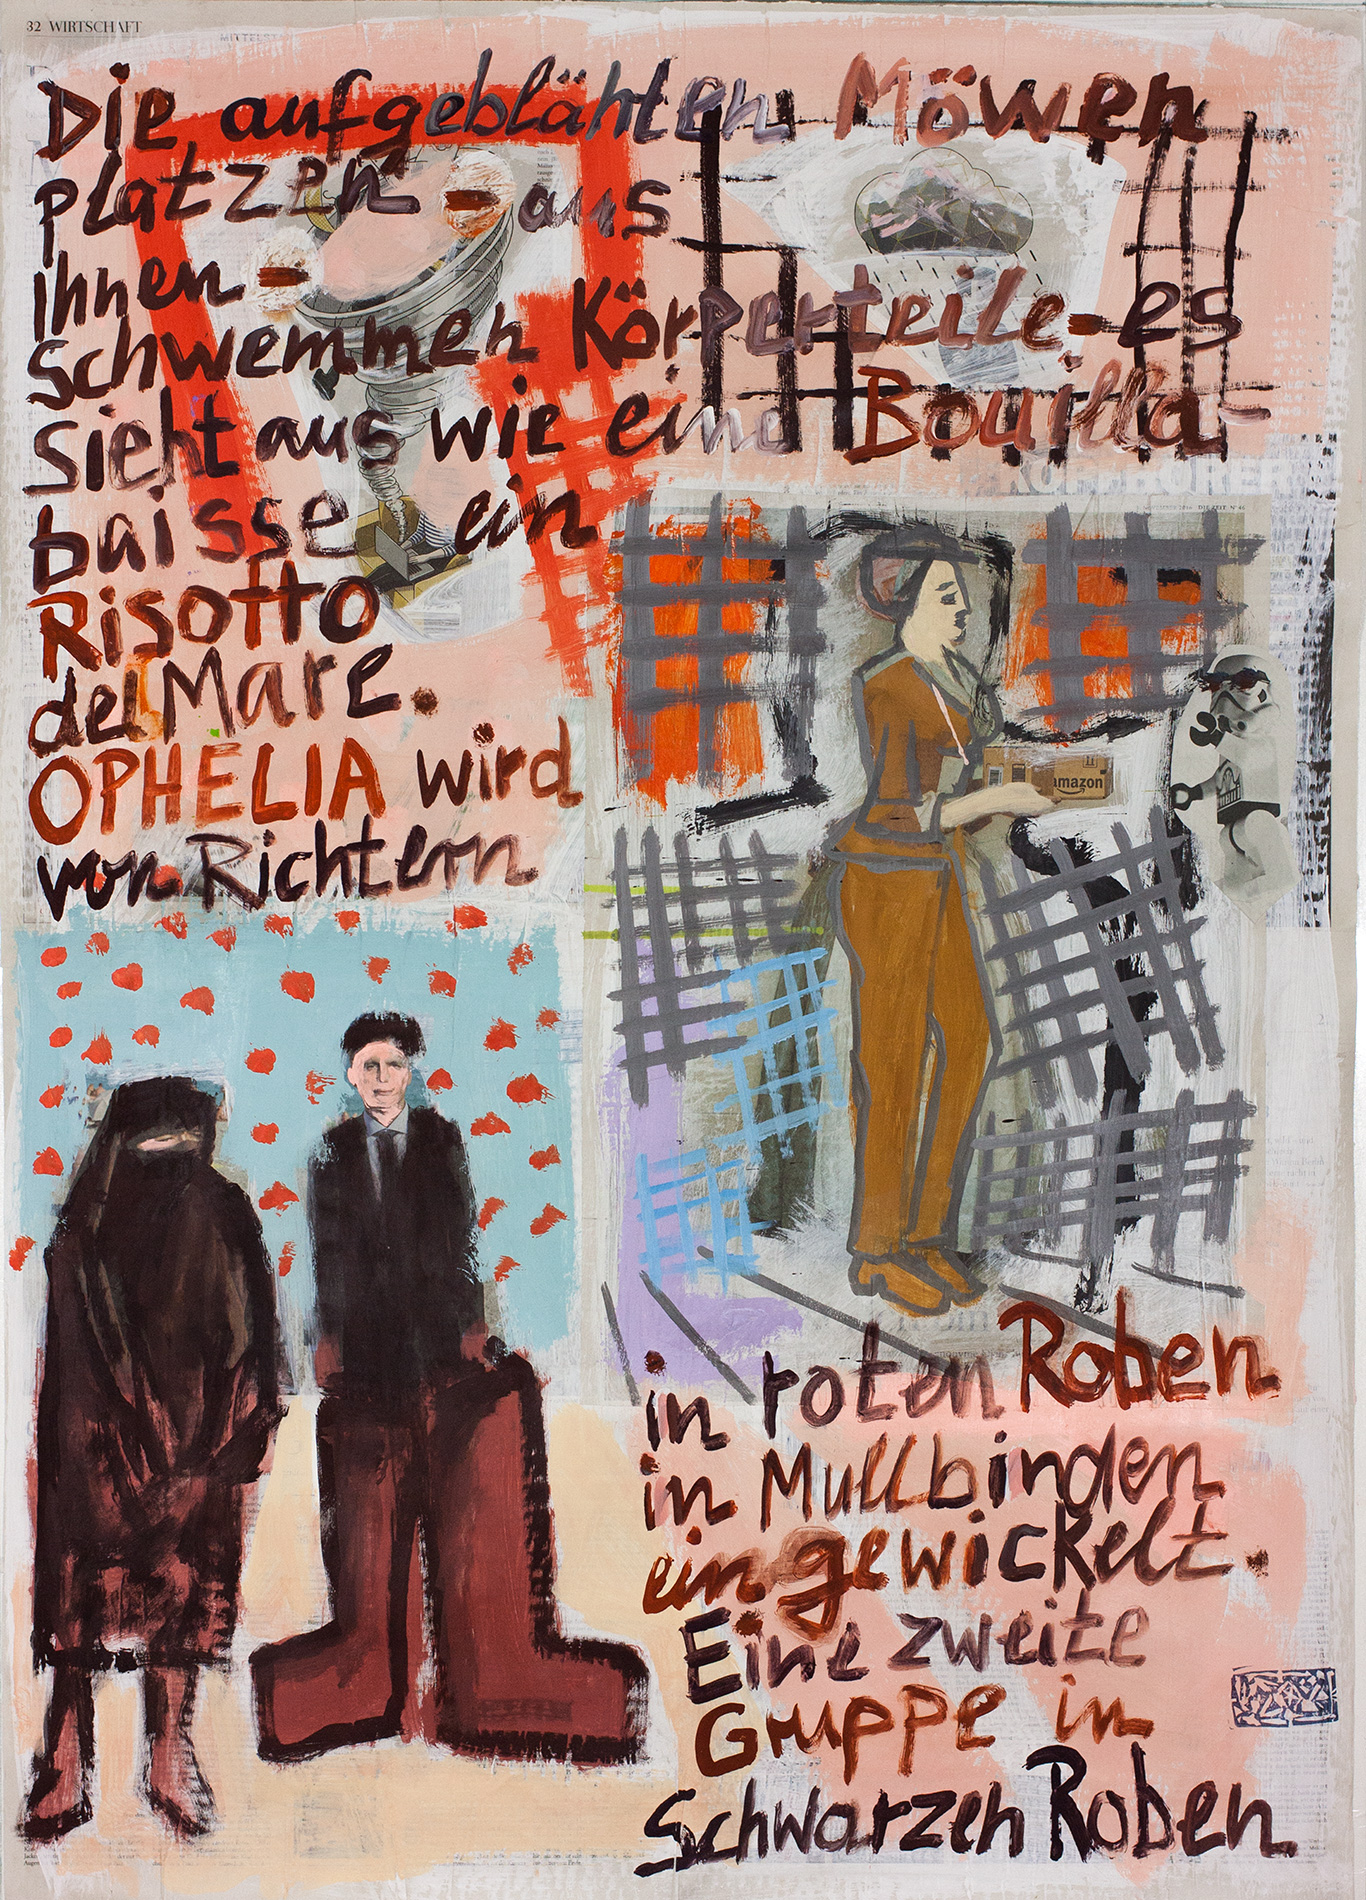 32 WIRTSCHAFT
Die aufgeblähten Möwen
platzen - aus
ihnen -
schwemmen Körperteile - es
sieht aus wie eine Bouilla-
baisse ein
Risotto
del Mare.
OPHELIA wird
von Richtern
amazon
in roten Roben
in Mullbinden
eingewickelt.
Eine zweite
Gruppe in
Schwarzen Roben